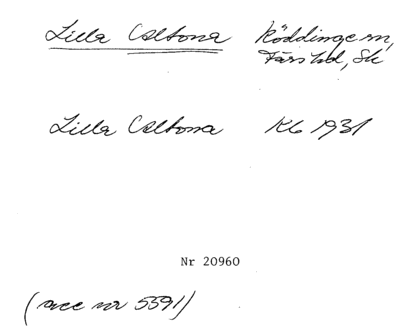 Lilla Altona Röddinge sn,
Färs hd, Sk
Lilla Altona Kb 1931
Nr 20960
(acc nr 5591)